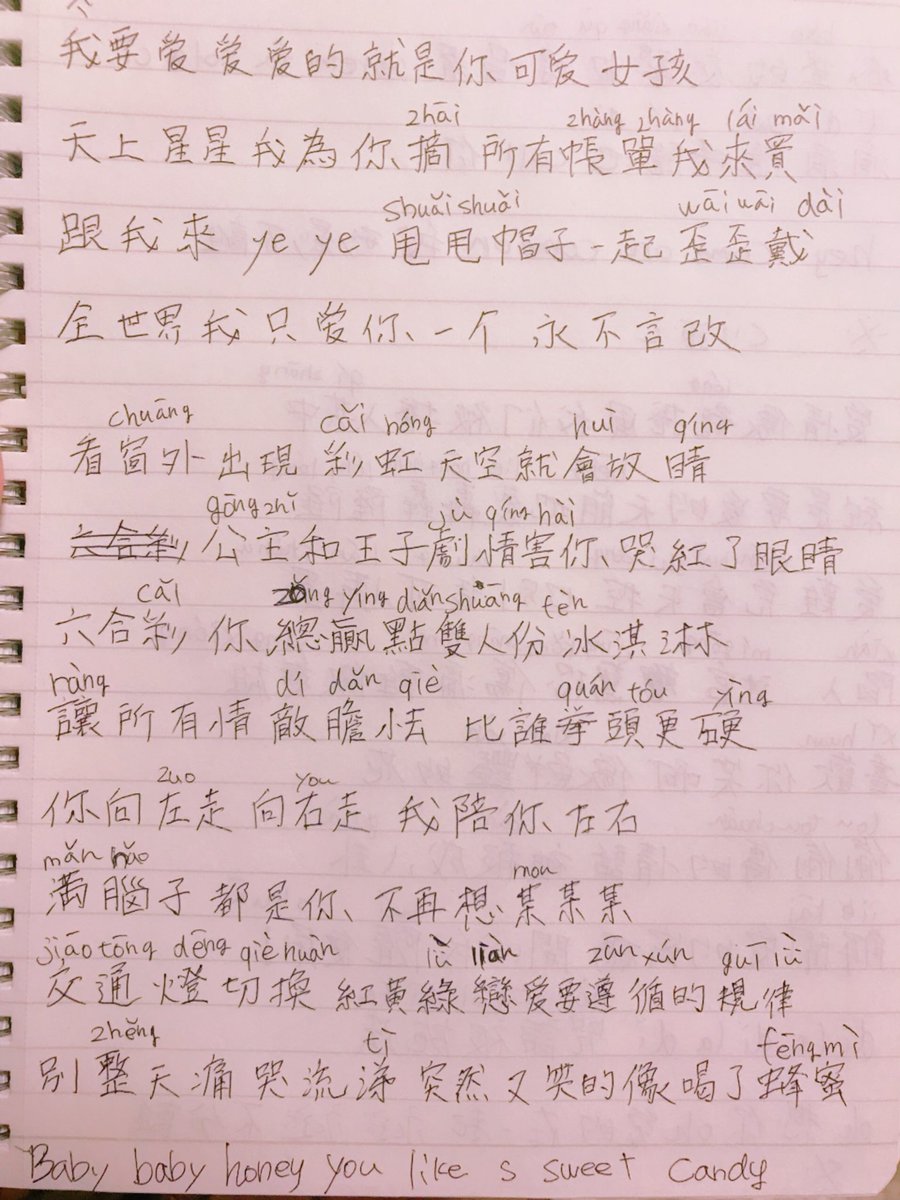 我要爱爱爱的就是你可爱女孩
zhāi zhàng zhàng lái mǎi
天上星星我為你摘 所有帳單我來買
shuǎi shuǎi wāi wāi dài
跟我來 ye ye 甩甩帽子一起歪歪戴
全世界我只爱你一个 永不言改
chuāng cǎi hóng huì qíng
看窗外出現彩虹天空就會放晴
gōng zhǔ jù qíng hài
公主和王子劇情害你哭紅了眼睛
cǎi zǒng yíng diǎn shuāng fèn
六合彩你總贏點雙人份冰淇淋
ràng dí dǎn qiè quán tóu yìng
讓所有情敵膽怯 比誰拳頭更硬
zuo you
你向左走向右走 我陪你左右
mǎn nǎo mou
满腦子都是你 不再想某某某
jiāo tōng dēng qiè huàn lǜ liàn zūn xún guī lǜ
交通燈切換 紅黃綠戀爱要遵循的規律
zhěng tì fēng mì
别整天痛哭流涕 突然又笑的像喝了蜂蜜
Baby baby honey you like s sweet candy